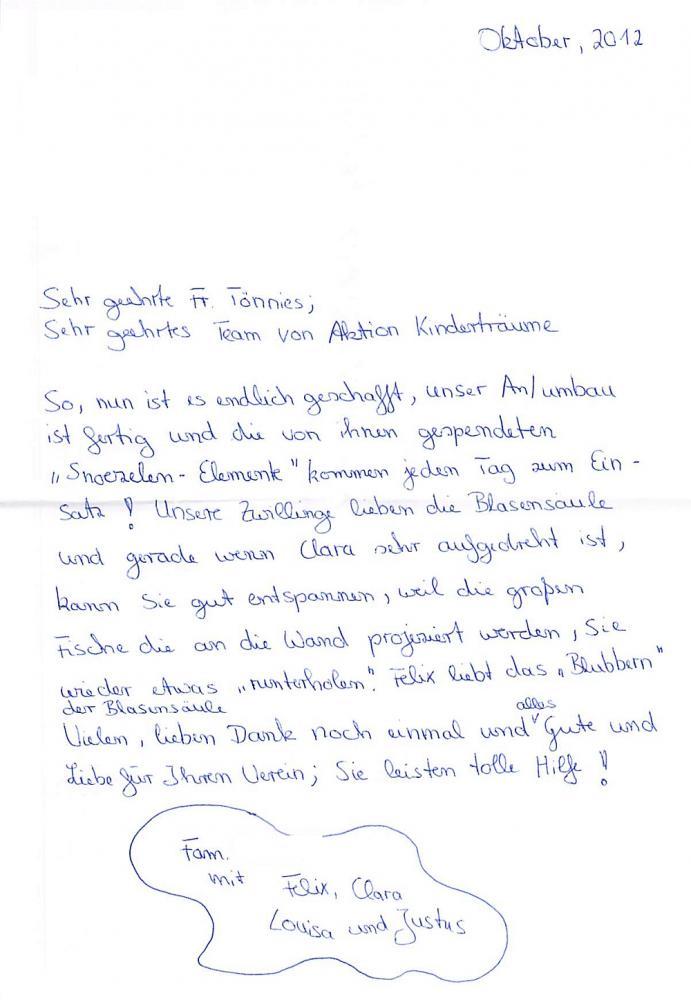 Oktober, 2012
Sehr geehrte Fr. Tönnies;
Sehr geehrtes Team von Aktion Kinderträume
So, nun ist es endlich geschafft, unser An/umbau
ist fertig und die von ihnen gespendeten
"Snoezelen-Elemente" kommen jeden Tag zum Ein-
satz! Unsere Zwillinge lieben die Blasensäule
und gerade wenn Clara sehr aufgedreht ist,
kann Sie gut entspannen, weil die großen
Fische die an die Wand projeziert werden, Sie
wieder etwas "runterholen". Felix liebt das "Blubbern"
der Blasensäule
alles
Vielen, lieben Dank noch einmal und Gute und
Liebe für Ihren Verein; Sie leisten tolle Hilfe!
Fam.
mit
Felix, Clara
Louisa und Justus